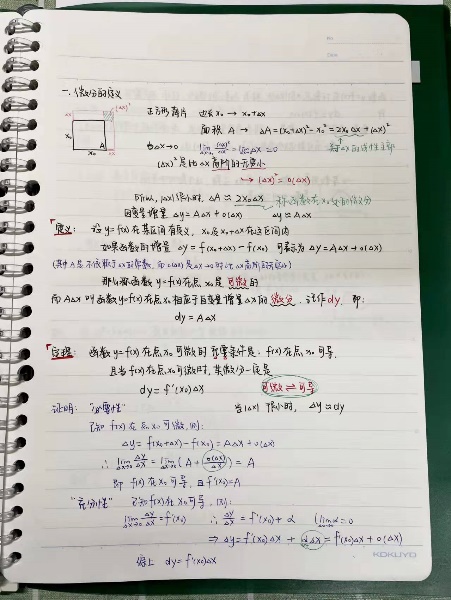 一. 微分的定义
正方形薄片 边长 x₀ → x₀+Δx
面积 A → ΔA=(x₀+Δx)²-x₀²=2x₀Δx+(Δx)²
当Δx→0 lim (Δx)²/Δx = lim Δx=0
(Δx)²是比Δx高阶的无穷小
↪ (Δx)²=o(Δx)
所以, |Δx|很小时, ΔA≈2x₀Δx
因变增量 Δy=AΔx+o(Δx) Δy≈AΔx
Δx
(Δx)²
x₀
A
x₀
Δx
定义: 设 y=f(x) 在某区间有定义, x₀及x₀+Δx在这区间内
如果函数的增量 Δy=f(x₀+Δx)-f(x₀) 可表示为 Δy=AΔx+o(Δx)
(其中A是不依赖于Δx的常数, 而o(Δx)是Δx→0时比Δx高阶的无穷小)
那么称函数 y=f(x) 在点 x₀ 是可微的
而 AΔx 叫函数 y=f(x) 在点 x₀ 相应于自变量增量Δx的微分, 记作 dy, 即:
dy=AΔx
定理: 函数 y=f(x) 在点 x₀ 可微的充要条件是: f(x) 在点 x₀ 可导,
且当 f(x) 在点 x₀ 可微时, 其微分一定是
dy=f'(x₀)Δx 可微⇌可导
证明: "必要性" 当|Δx|很小时, Δy≈dy
已知 f(x) 在点 x₀ 可微, 则:
Δy=f(x₀+Δx)-f(x₀)=AΔx+o(Δx)
∴ lim Δx→0 Δy/Δx = lim Δx→0 (A+o(Δx)/Δx)=A
即 f(x) 在 x₀ 可导, 且f'(x₀)=A
"充分性" 已知 f(x) 在 x₀ 可导, 则:
lim Δx→0 Δy/Δx=f'(x₀) ∴ Δy/Δx=f'(x₀)+α (lim Δx→0 α=0
⇒ Δy=f'(x₀)Δx+αΔx=f'(x₀)Δx+o(Δx)
综上 dy=f'(x₀)Δx
KOKUYO